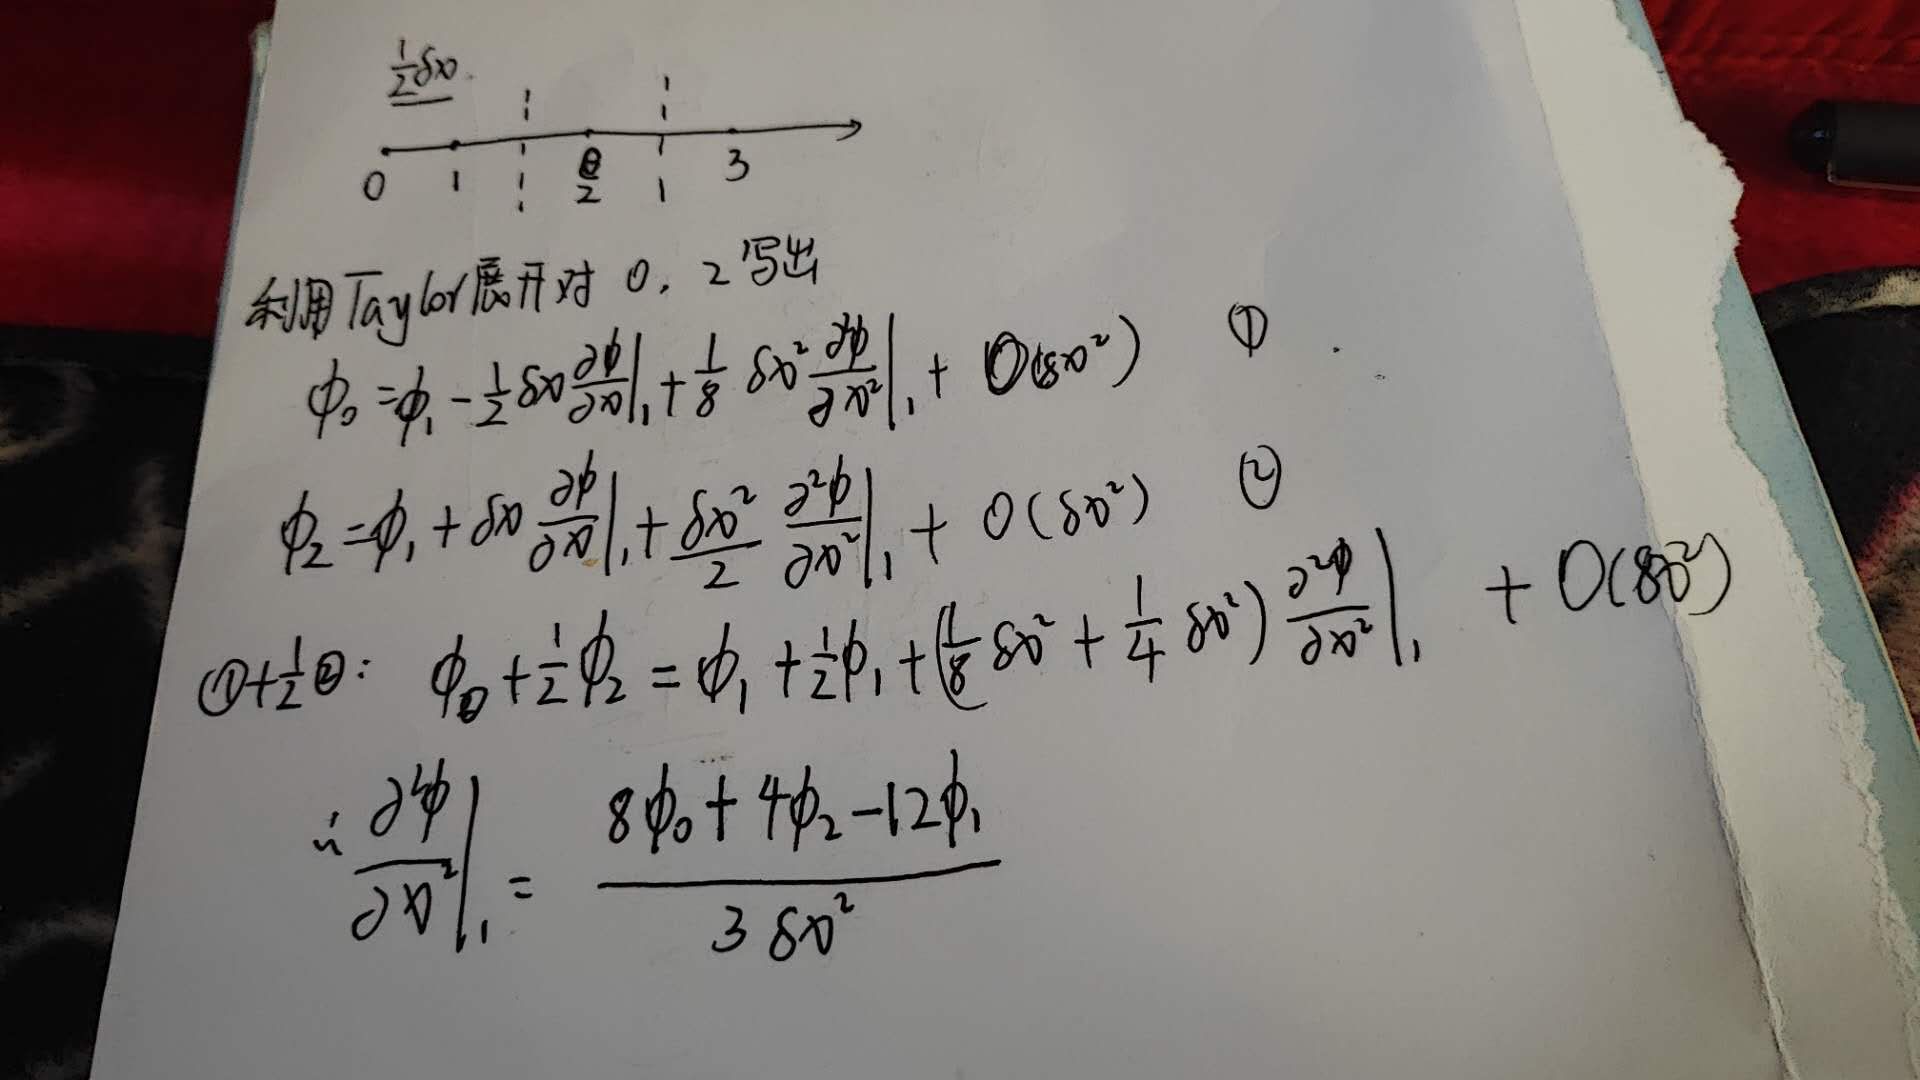 ½δx
0 1 2 3
利用Taylor展开对 0, 2 写出
ϕ₀ = ϕ₁ - ½ δx ∂ϕ/∂x|₁ + 1/8 δx² ∂²ϕ/∂x²|₁ + O(δx²) ①
ϕ₂ = ϕ₁ + δx ∂ϕ/∂x|₁ + δx²/2 ∂²ϕ/∂x²|₁ + O(δx²) ②
①+½②: ϕ₀ + ½ϕ₂ = ϕ₁ + ½ϕ₁ + (1/8 δx² + 1/4 δx²) ∂²ϕ/∂x²|₁ + O(δx²)
∴ ∂²ϕ/∂x²|₁ = (8ϕ₀ + 4ϕ₂ - 12ϕ₁)/(3δx²)